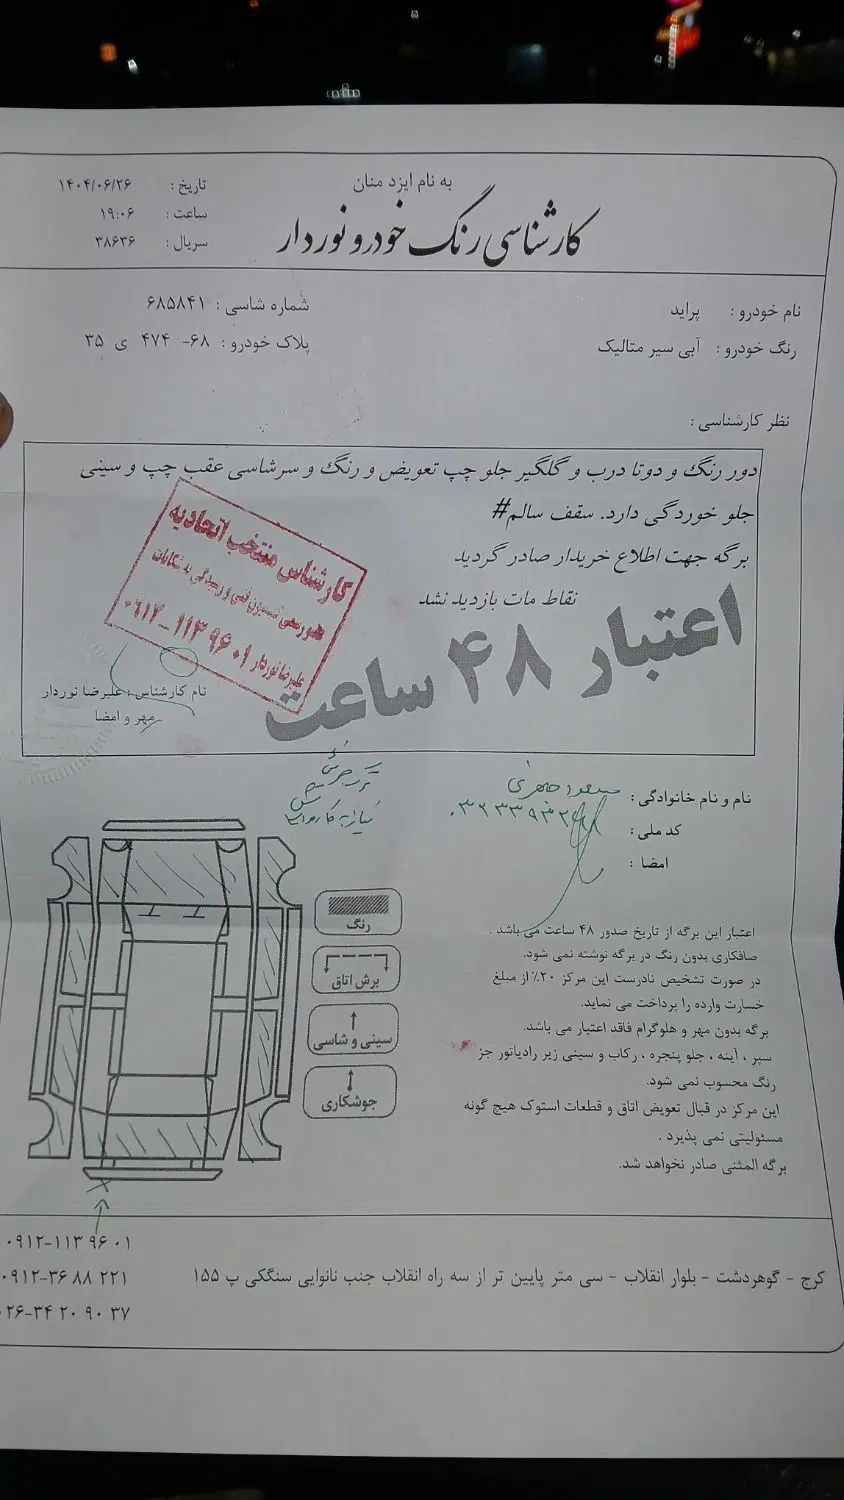 به نام ایزد منان
کارشناسی رنگ خودرو نوردار
تاریخ : ۱۴۰۴/۰۶/۲۶
ساعت : ۱۹:۰۶
سریال : ۳۸۶۳۶
نام خودرو : پراید
شماره شاسی : ۶۸۵۸۴۱
رنگ خودرو : آبی سیر متالیک
پلاک خودرو : ۶۸- ۴۷۴ ی ۳۵
نظر کارشناسی :
دور رنگ و دوتا درب و گلگیر جلو چپ تعویض و رنگ و سرشاسی عقب چپ و سینی
جلو خوردگی دارد. سقف سالم#
برگه جهت اطلاع خریدار صادر گردید
نقاط مات بازدید نشد
اعتبار ۴۸ ساعت
کارشناس منتخب اتحادیه
کمسیون فنی و رسیدگی به شکایات
علیرضا نوردار ۰۹۱۲-۱۱۳ ۹۶ ۰۱
نام کارشناس : علیرضا نوردار
مهر و امضا
نام و نام خانوادگی :
کد ملی :
امضا :
رنگ
برش اتاق
سینی و شاسی
جوشکاری
اعتبار این برگه از تاریخ صدور ۴۸ ساعت می باشد .
صافکاری بدون رنگ در برگه نوشته نمی شود.
در صورت تشخیص نادرست این مرکز ۲۰٪ از مبلغ
خسارت وارده را پرداخت می نماید.
برگه بدون مهر و هلوگرام فاقد اعتبار می باشد.
سپر ، آینه ، جلو پنجره ، رکاب و سینی زیر رادیاتور جز
رنگ محسوب نمی شود.
این مرکز در قبال تعویض اتاق و قطعات استوک هیچ گونه
مسئولیتی نمی پذیرد .
برگه المثنی صادر نخواهد شد.
۰۹۱۲-۱۱۳ ۹۶ ۰۱
کرج - گوهردشت - بلوار انقلاب - سی متر پایین تر از سه راه انقلاب جنب نانوایی سنگکی پ ۱۵۵
۰۹۱۲-۳۶ ۸۸ ۲۲۱
۲۶-۳۴ ۲۰ ۹۰ ۳۷